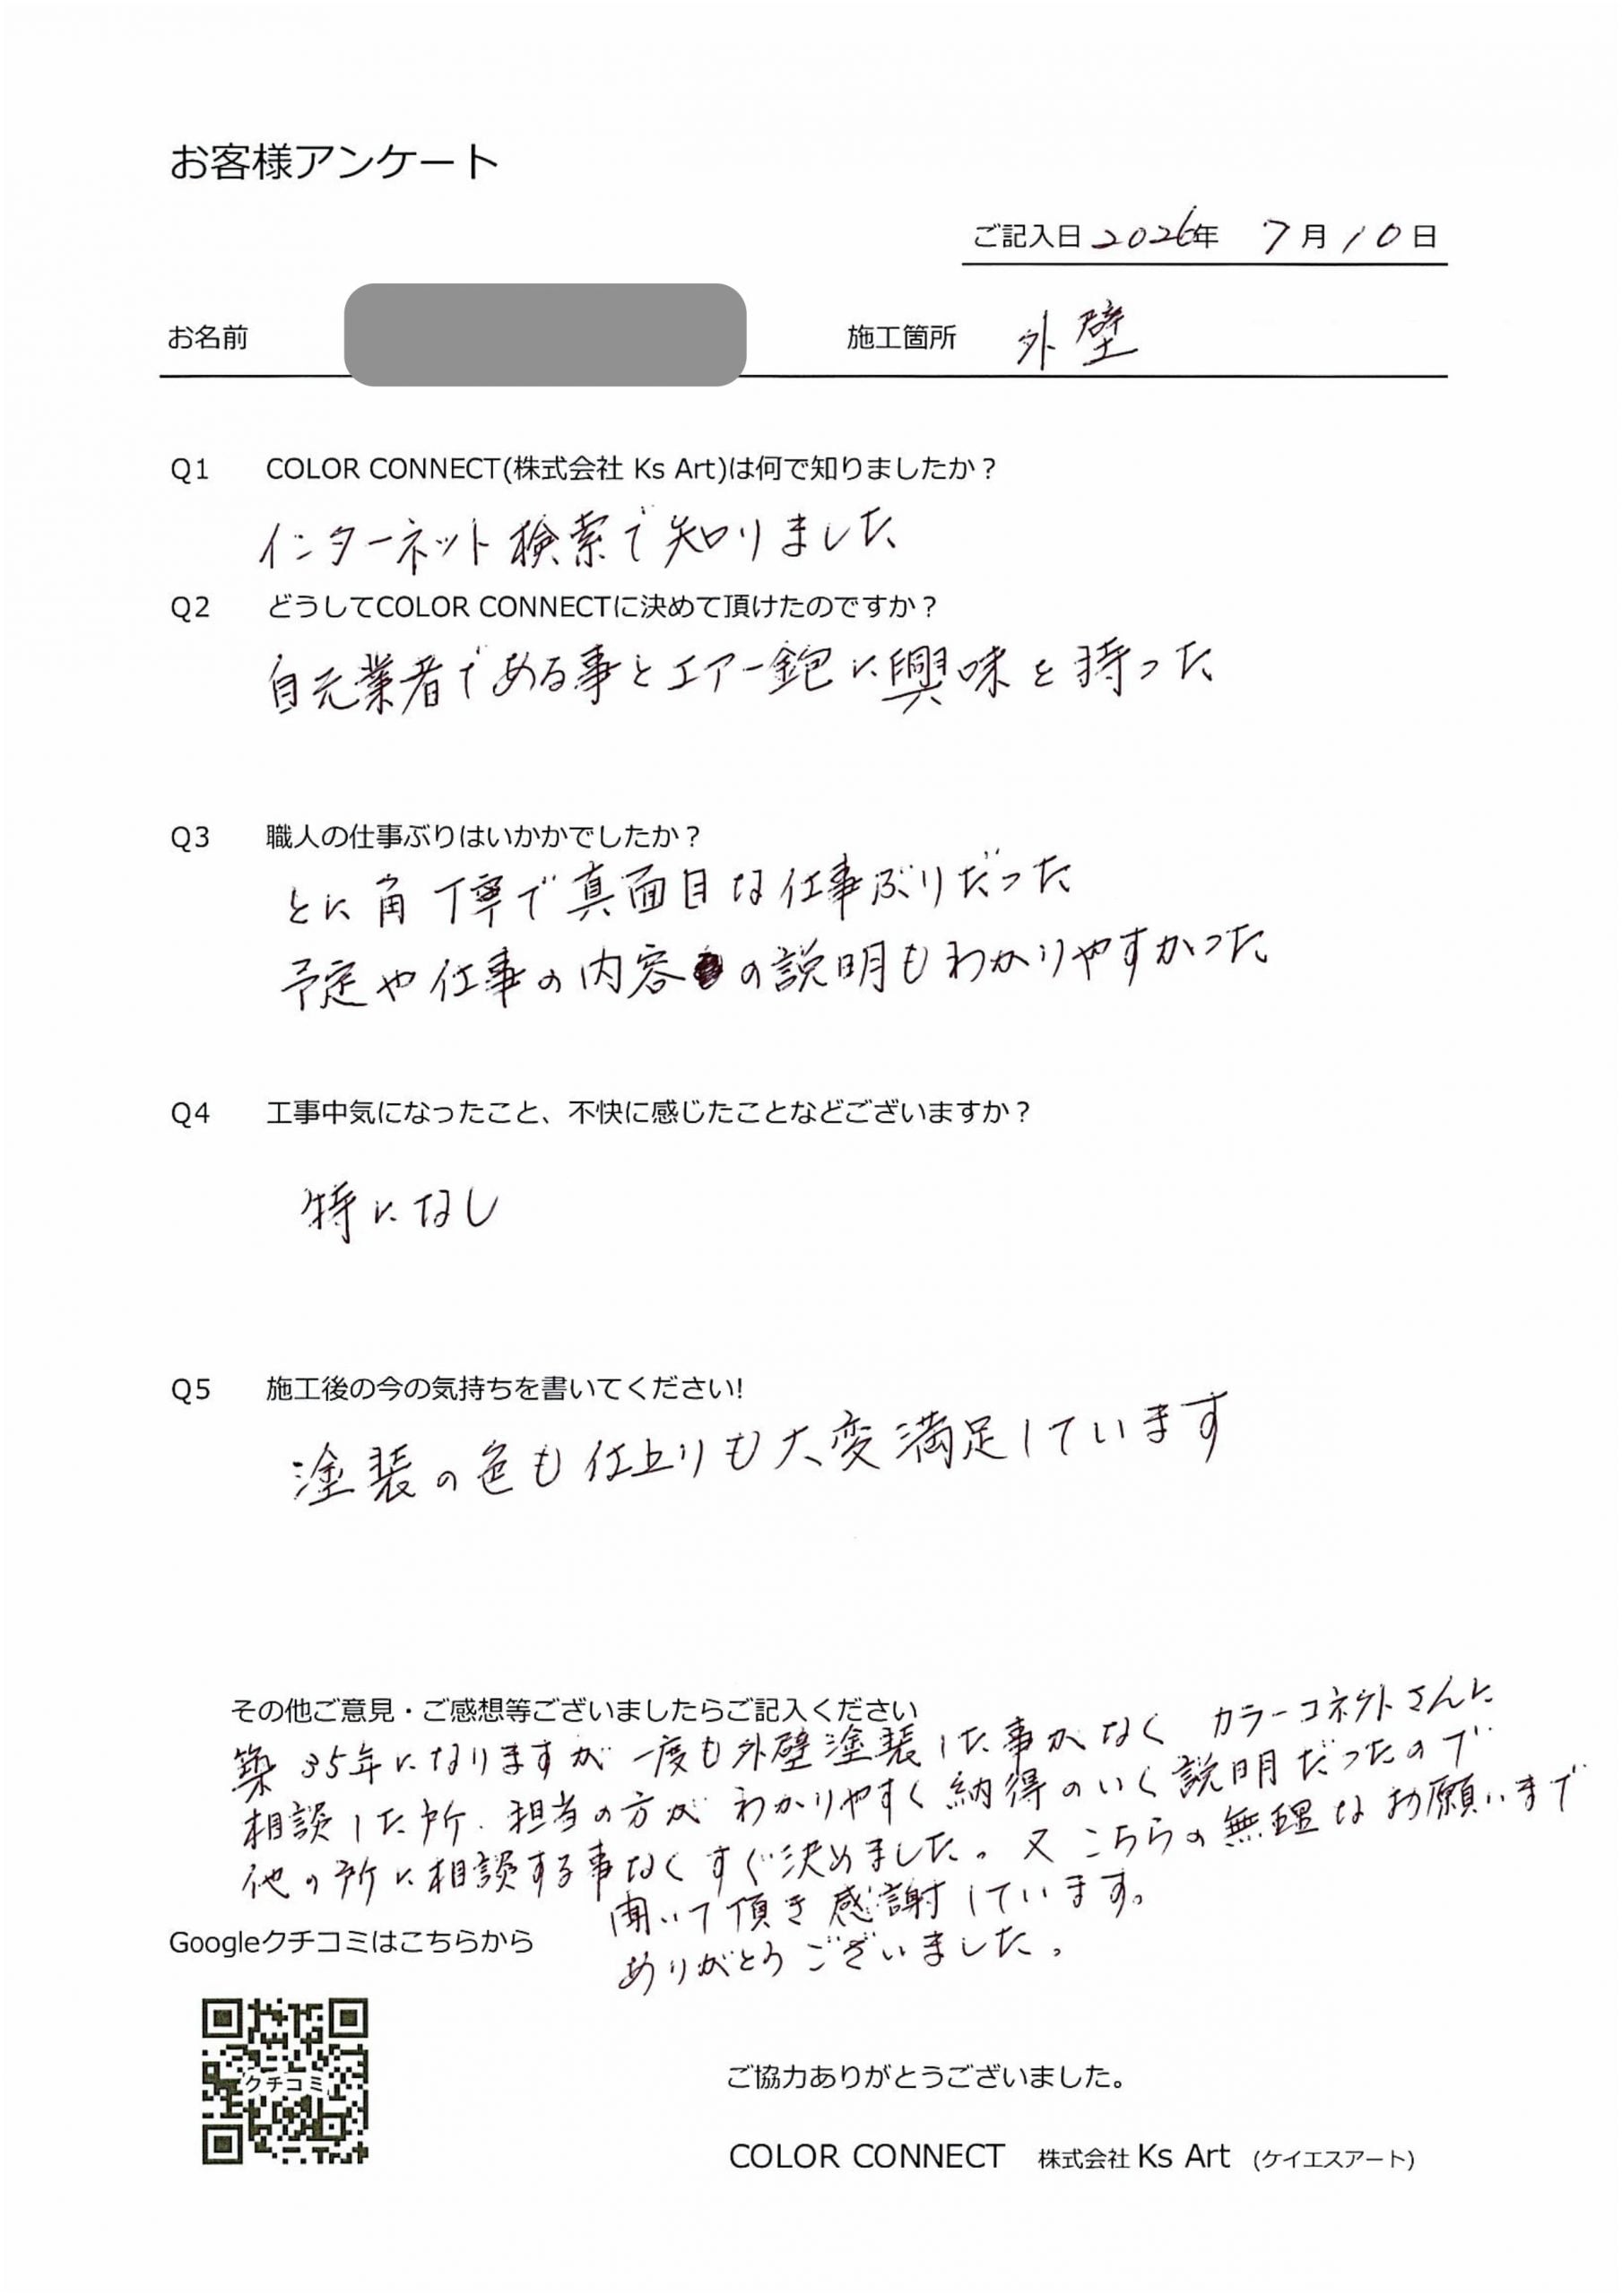 お客様アンケート
ご記入日 2026年 7月10日
お名前 施工箇所 外壁
Q1 COLOR CONNECT(株式会社 Ks Art)は何で知りましたか？
インターネット検索で知りました
Q2 どうしてCOLOR CONNECTに決めて頂けたのですか？
自元業者である事とエアー鉋に興味を持った
Q3 職人の仕事ぶりはいかかでしたか？
とに角 丁寧で真面目な仕事ぶりだった
予定や仕事の内容の説明もわかりやすかった
Q4 工事中気になったこと、不快に感じたことなどございますか？
特になし
Q5 施工後の今の気持ちを書いてください!
塗装の色も仕上りも大変満足しています
その他ご意見・ご感想等ございましたらご記入ください
築35年になりますが一度も外壁塗装した事がなく カラーコネクトさんに
相談した所、担当の方が わかりやすく納得のいく説明だったので
他の所に相談する事なくすぐ決めました。又 こちらの無理なお願いまで
聞いて頂き感謝しています。
ありがとうございました。
Googleクチコミはこちらから
クチコミ
ご協力ありがとうございました。
COLOR CONNECT 株式会社 Ks Art (ケイエスアート)